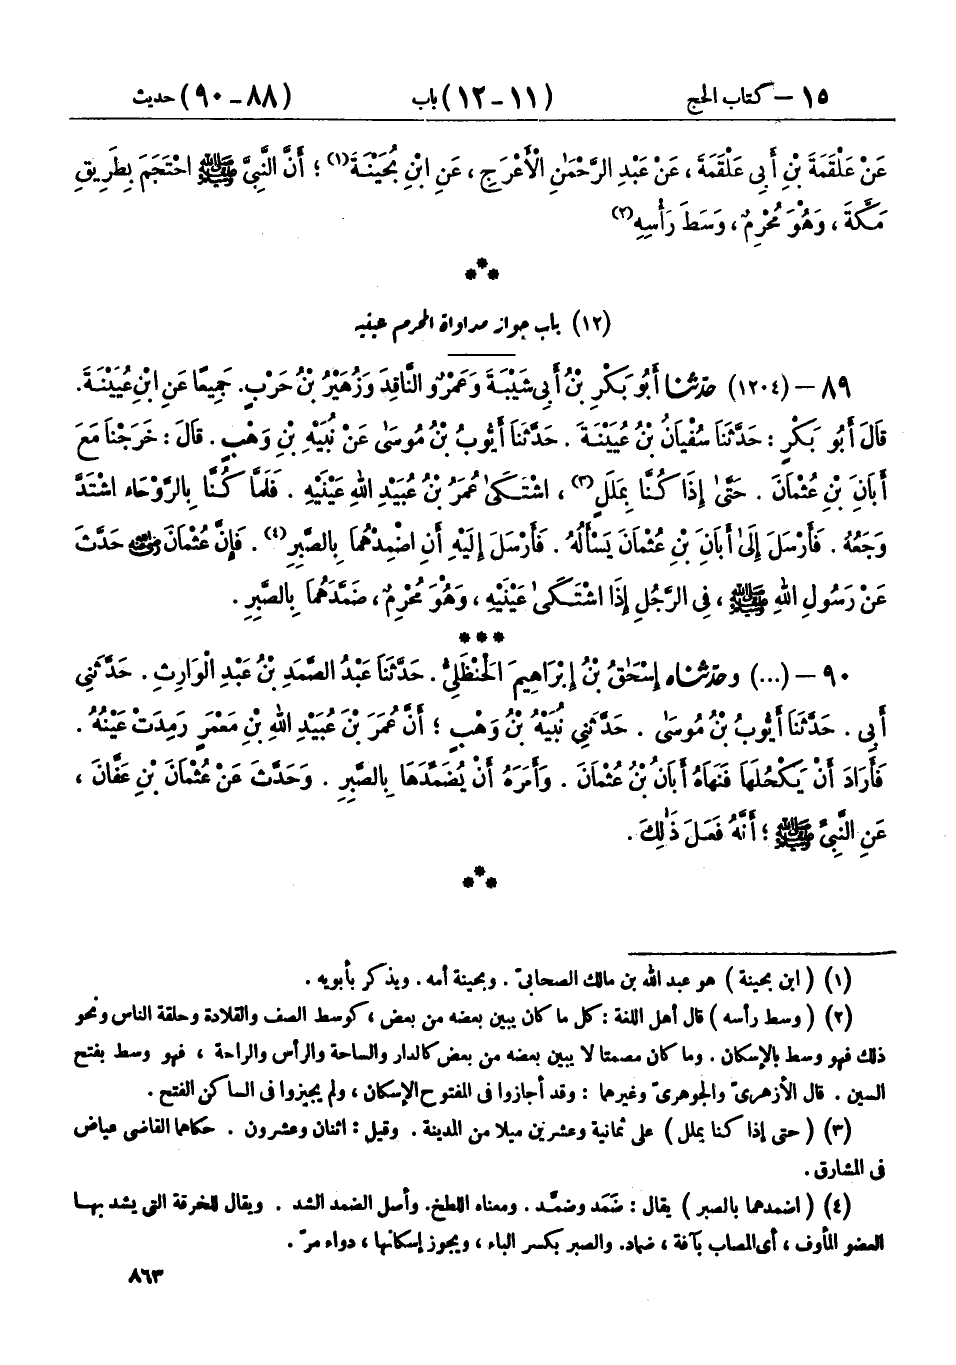 ١٥ – كتاب الحج (١١ - ١٢) باب (٨٨ - ٩٠) حديث
عَنْ عَلْقَمَةَ بْنِ أَبِي عَلْقَمَةَ ، عَنْ عَبْدِ الرَّحْمٰنِ الْأَعْرَجِ ، عَنِ ابْنِ بُحَيْنَةَ(١) ؛ أَنَّ النَّبِيَّ ﷺ احْتَجَمَ بِطَرِيقِ
مَكَّةَ ، وَهُوَ مُحْرِمٌ ، وَسَطَ رَأْسِهِ(٢)
***
(١٢) باب جواز مداواة المحرم عينيه
٨٩ – (١٢٠٤) حدّثنا أَبُو بَكْرِ بْنُ أَبِي شَيْبَةَ وَعَمْرٌو النَّاقِدُ وَزُهَيْرُ بْنُ حَرْبٍ. جَمِيعًا عَنِ ابْنِ عُيَيْنَةَ.
قَالَ أَبُو بَكْرٍ : حَدَّثَنَا سُفْيَانُ بْنُ عُيَيْنَةَ . حَدَّثَنَا أَيُّوبُ بْنُ مُوسَىٰ عَنْ نُبَيْهِ بْنِ وَهْبٍ . قَالَ : خَرَجْنَا مَعَ
أَبَانِ بْنِ عُثْمَانَ . حَتَّىٰ إِذَا كُنَّا بِمَلَلٍ(٣) ، اشْتَكَىٰ عُمَرُ بْنُ عُبَيْدِ اللهِ عَيْنَيْهِ . فَلَمَّا كُنَّا بِالرَّوْحَاءِ اشْتَدَّ
وَجَعُهُ . فَأَرْسَلَ إِلَىٰ أَبَانِ بْنِ عُثْمَانَ يَسْأَلُهُ . فَأَرْسَلَ إِلَيْهِ أَنِ اضْمِدْهُمَا بِالصَّبِرِ(٤) . فَإِنَّ عُثْمَانَ رضي الله عنه حَدَّثَ
عَنْ رَسُولِ اللهِ ﷺ ، فِي الرَّجُلِ إِذَا اشْتَكَىٰ عَيْنَيْهِ ، وَهُوَ مُحْرِمٌ ، ضَمَّدَهُمَا بِالصَّبِرِ .
***
٩٠ – (...) وحدّثناه إِسْحٰقُ بْنُ إِبْرَاهِيمَ الْحَنْظَلِيُّ . حَدَّثَنَا عَبْدُ الصَّمَدِ بْنُ عَبْدِ الْوَارِثِ . حَدَّثَنِي
أَبِي . حَدَّثَنَا أَيُّوبُ بْنُ مُوسَىٰ . حَدَّثَنِي نُبَيْهُ بْنُ وَهْبٍ ؛ أَنَّ عُمَرَ بْنَ عُبَيْدِ اللهِ بْنِ مَعْمَرٍ رَمِدَتْ عَيْنُهُ .
فَأَرَادَ أَنْ يَكْحُلَهَا فَنَهَاهُ أَبَانُ بْنُ عُثْمَانَ . وَأَمَرَهُ أَنْ يُضَمِّدَهَا بِالصَّبِرِ . وَحَدَّثَ عَنْ عُثْمَانَ بْنِ عَفَّانَ ،
عَنِ النَّبِيِّ ﷺ ؛ أَنَّهُ فَعَلَ ذَٰلِكَ .
***
(١) ( ابن بحينة ) هو عبد الله بن مالك الصحابيّ . وبحينة أمه . ويذكر بأبويه .
(٢) ( وسط رأسه ) قال أهل اللغة : كل ما كان يبين بعضه من بعض ، كوسط الصف والقلادة وحلقة الناس ونحو
ذلك فهو وسط بالإسكان . وما كان مصمتا لا يبين بعضه من بعض كالدار والساحة والرأس والراحة ، فهو وسط بفتح
السين . قال الأزهريّ والجوهريّ وغيرهما : وقد أجازوا في المفتوح الإسكان ، ولم يجيزوا في الساكن الفتح .
(٣) ( حتى إذا كنا بملل ) على ثمانية وعشرين ميلا من المدينة . وقيل : اثنان وعشرون . حكاهما القاضي عياض
في المشارق .
(٤) ( اضمدهما بالصبر ) يقال : ضَمَد وضمَّد . ومعناه اللطخ. وأصل الضمد الشد . ويقال للخرقة التي يشد بهـا
العضو المأوف ، أي المصاب بآفة ، ضماد. والصبر بكسر الباء ، ويجوز إسكانها ، دواء مرّ .
٨٦٣